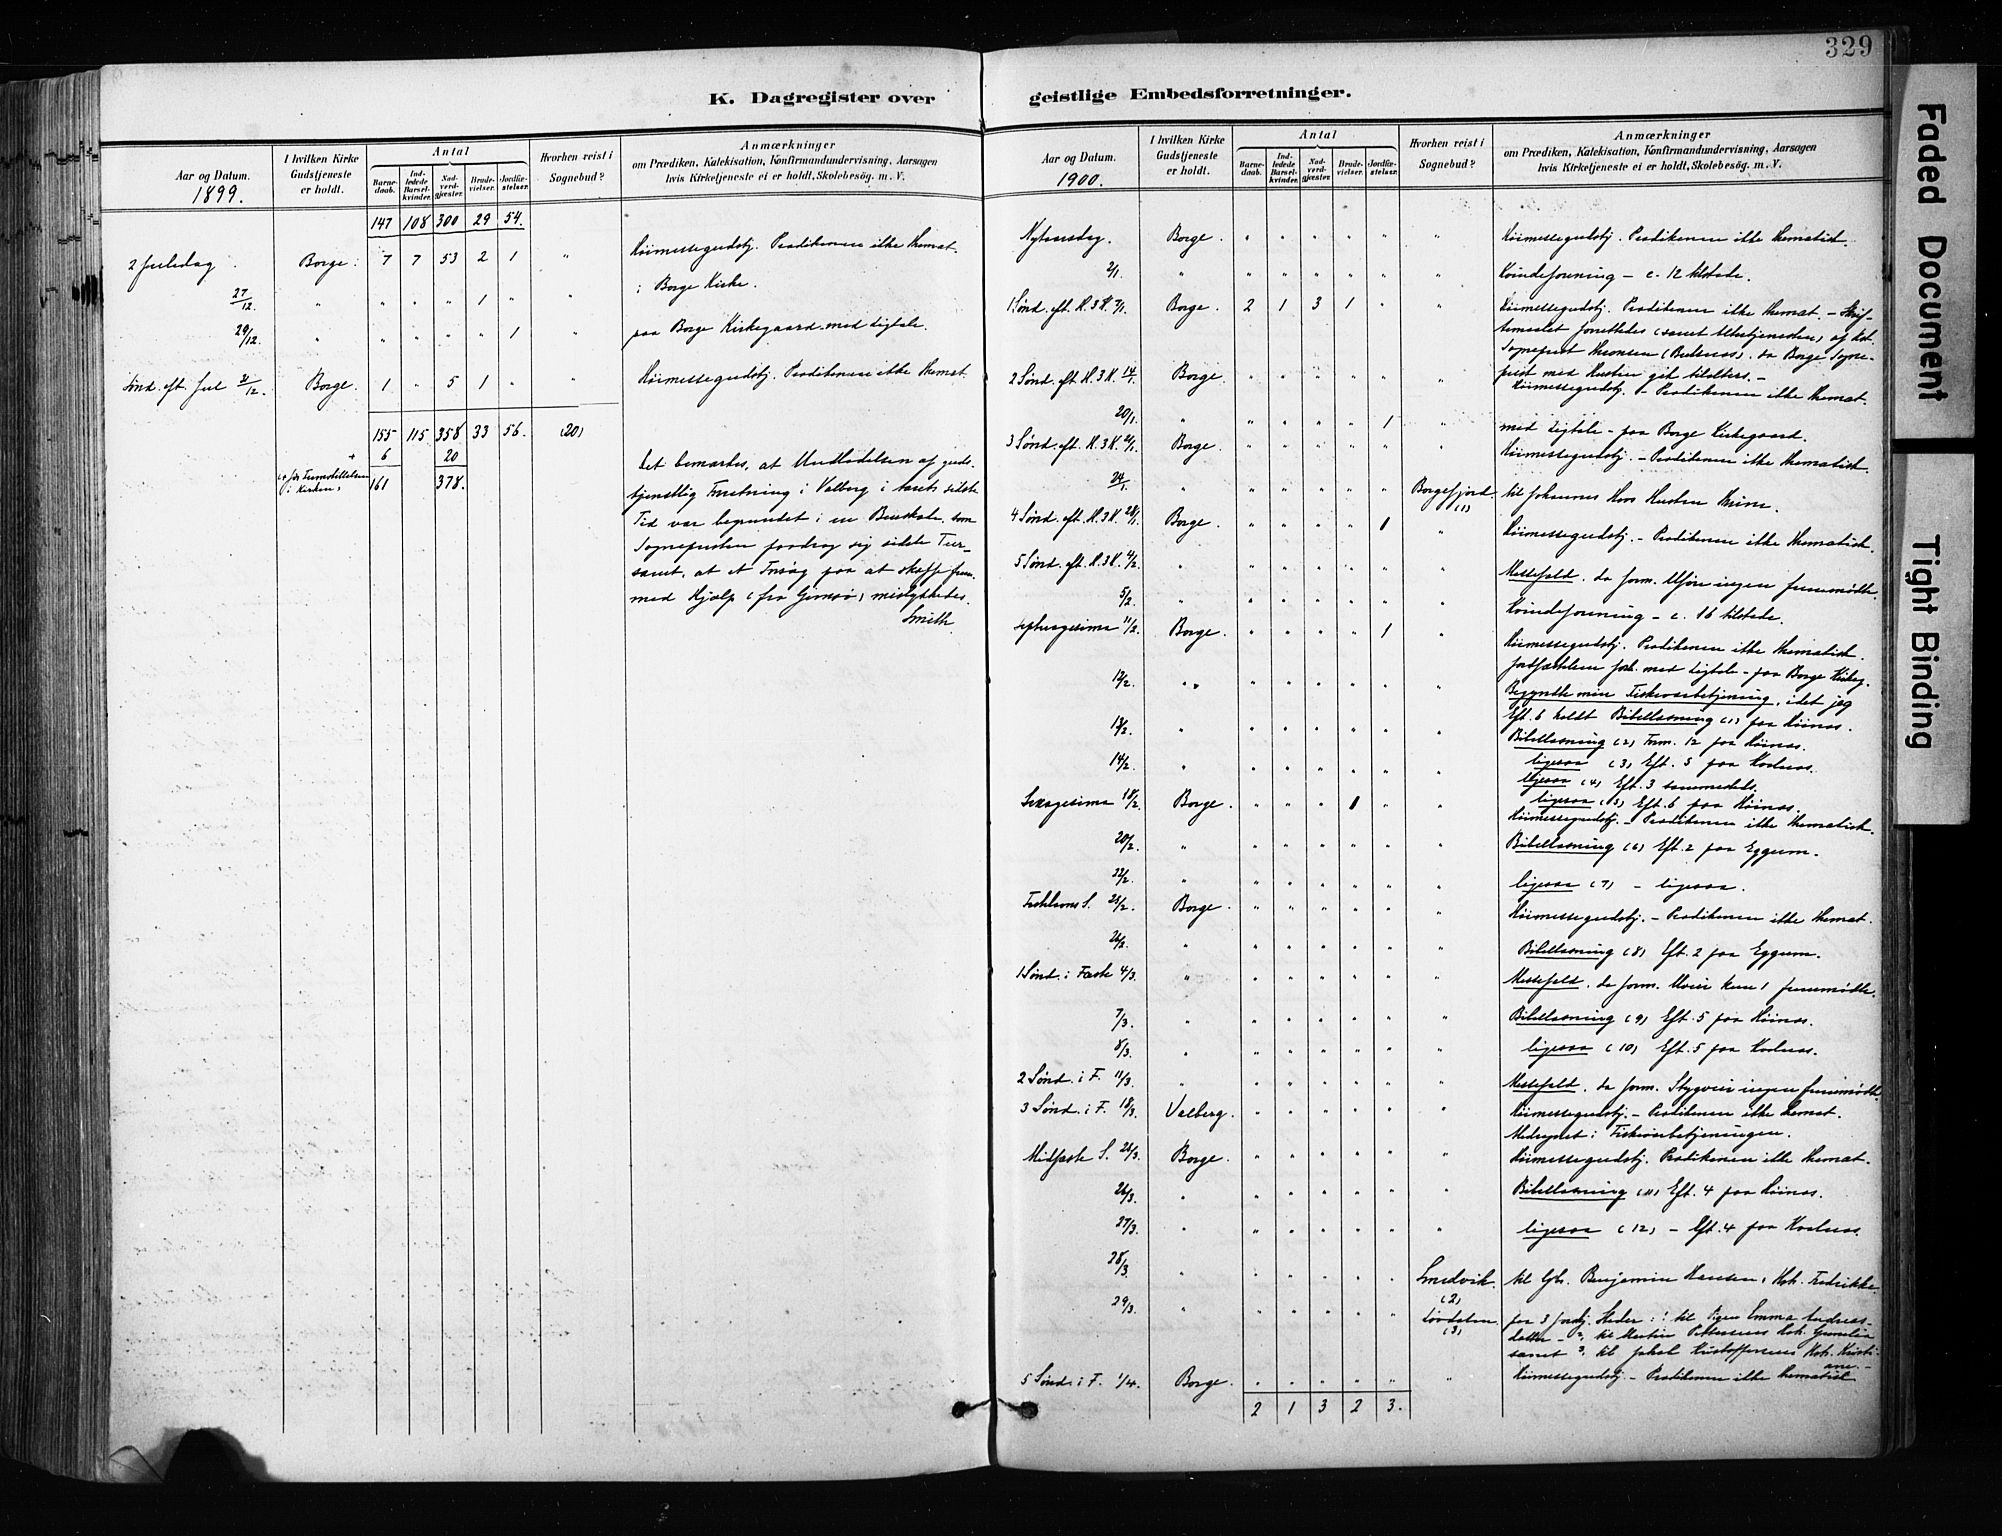 329
K. Dagregister over
Aar og Datum.
1899.
I hvilken Kirke Gudstjeneste er holdt.
Antal
Barnedaab.
Indledede Barselkvinder.
Nadverdgjæster.
Brudevielser.
Jordfæstelser.
Hvorhen reist i Sognebud?
Anmærkninger
om Prædiken, Katekisation, Konfirmandundervisning, Aarsagen
hvis Kirketjeneste ei er holdt, Skolebesög. m. V.
147 108 300 29 54.
2 Juledag. Borge. 7 7 53 2 1 " Höimessegudstj. Prædikenen ikke themat.
i Borge Kirke.
27/12. " " " " 1 " "
29/12. " " " " " 1 " paa Borge Kirkegaard med Ligtale.
Sönd. eft. Jul 31/12. Borge. 1 " 5 1 " " Höimessegudstj. Prædikenen ikke themat.
155 115 358 33 56. (20)
+ 6 20
i Kirken) 161 378.
Det bemærkes, at Undladelsen af guds-
tjenstlig Forretning i Valberg i Aarets sidste
Tid var begrundet i en Benskade, som
Sognepresten paadrog sig sidste
samt, at et Forsög paa at skaffe frem-
med Hjælp (fra Gimsö) mislykkedes.
Smith
geistlige Embedsforretninger.
Aar og Datum.
1900.
I hvilken Kirke Gudstjeneste er holdt.
Antal
Barnedaab.
Indledede Barselkvinder.
Nadverdgjæster.
Brudevielser.
Jordfæstelser.
Hvorhen reist i Sognebud?
Anmærkninger
om Prædiken, Katekisation, Konfirmandundervisning, Aarsagen
hvis Kirketjeneste ei er holdt, Skolebesög. m. V.
Nytaarsdag. Borge. " " " " " " Höimessegudstj. Prædikenen ikke thematisk.
2/1. " " " " " " " Kvindeforening – c. 12 tilstede.
1 Sönd. eft. H. 3 K. 7/1. Borge. 2 1 3 1 " " Höimessegudstj. Prædikenen ikke themat. – Skrif-
temaalet forrettedes (samt Altertjenesten) af
Sogneprest (Buksnes), da Borge Sogne-
prest med Hustru gik tilalters. –
2 Sönd. eft. H. 3 K. 14/1. Borge. " " " " " " Höimessegudstj. – Prædikenen ikke themat.
20/1. " " " " " 1 " med Ligtale – paa Borge Kirkegaard.
3 Sönd. eft. H. 3 K. 21/1. Borge. " " " " " Höimessegudstj. – Prædikenen ikke thematisk.
24/1. " " " " " " Borgefjord (1) til Johannes Hustru
4 Sönd. eft. H. 3 K. 28/1. Borge. " " " " 1 " Höimessegudstj. – Prædikenen ikke thematisk.
5 Sönd. eft. H. 3 K. 4/2. " " " " " " " Messefald, da form. Uföre ingen fremmödte.
5/2. " " " " " " " Kvindeforening – c. 16 tilstede.
Septuagesima 11/2. Borge. " " " " 1 " Höimessegudstj. Prædikenen ikke thematisk.
Jordfæstelsen forr. med Ligtale – paa Borge Kirkeg.
12/2. " " " " " " " Begyndte min Fiskeværbetjening, idet jeg
Eft. 6 holdt Bibellæsning (1) paa Höinæs.
13/2. " " " " " " " Bibellæsning (2) Form. 12 paa Höinæs.
ligesaa (3) Eft. 5 paa Kvalnæs.
14/2. " " " " " " " ligesaa (4) Eft. 3 sammesteds.
ligesaa (5) Eft. 6 paa Höinæs.
Sexagesima 18/2. Borge. " " " 1 " " Höimessegudstj. – Prædikenen ikke thematisk.
20/2. " " " " " " " Bibellæsning (6) Eft. 2 paa Eggum.
22/2. " " " " " " " ligesaa (7) – ligesaa.
Fastelavns S. 25/2. Borge. " " " " " " Höimessegudstj. – Prædikenen ikke themat.
26/2. " " " " " " " Bibellæsning (8) Eft. 2 paa Eggum.
1 Sönd. i Faste 4/3. " " " " " " " Messefald, da form. Uveir kun 1 fremmödte.
7/3. " " " " " " " Bibellæsning (9) Eft. 5 paa Höinæs.
8/3. " " " " " " " ligesaa (10) Eft. 5 paa Kvalnæs.
2 Sönd. i F. 11/3. " " " " " " " Messefald, da form. Stygveir ingen fremmödte.
3 Sönd. i F. 18/3. Valberg. " " " " " " Höimessegudstj. – Prædikenen ikke themat.
Medregnet i Fiskeværbetjeningen.
Midfaste S. 25/3. Borge. " " " " " " Höimessegudstj. Prædikenen ikke themat.
26/3. " " " " " " " Bibellæsning (11) Eft. 4 paa Höinæs.
27/3. " " " " " " " ligesaa (12) – Eft. 4 paa Kvalnæs.
28/3. " " " " " " Smedvik. (2) til Gbr. Benjamin Hansens Koh. Fredrikke
29/3. " " " " " " (3) paa 3 forskj. Steder: 1. til Pigen Emma Andreas-
datter – 2. til Martin Pettersens Koh.
samt 3. til Jakob Kristoffersens Koh. Kristi-
ane. –
5 Sönd. i F. 1/4. Borge. " " " " " " Höimessegudstj. – Prædikenen ikke thematisk
2 1 3 2 3.
Faded Document
Tight Binding